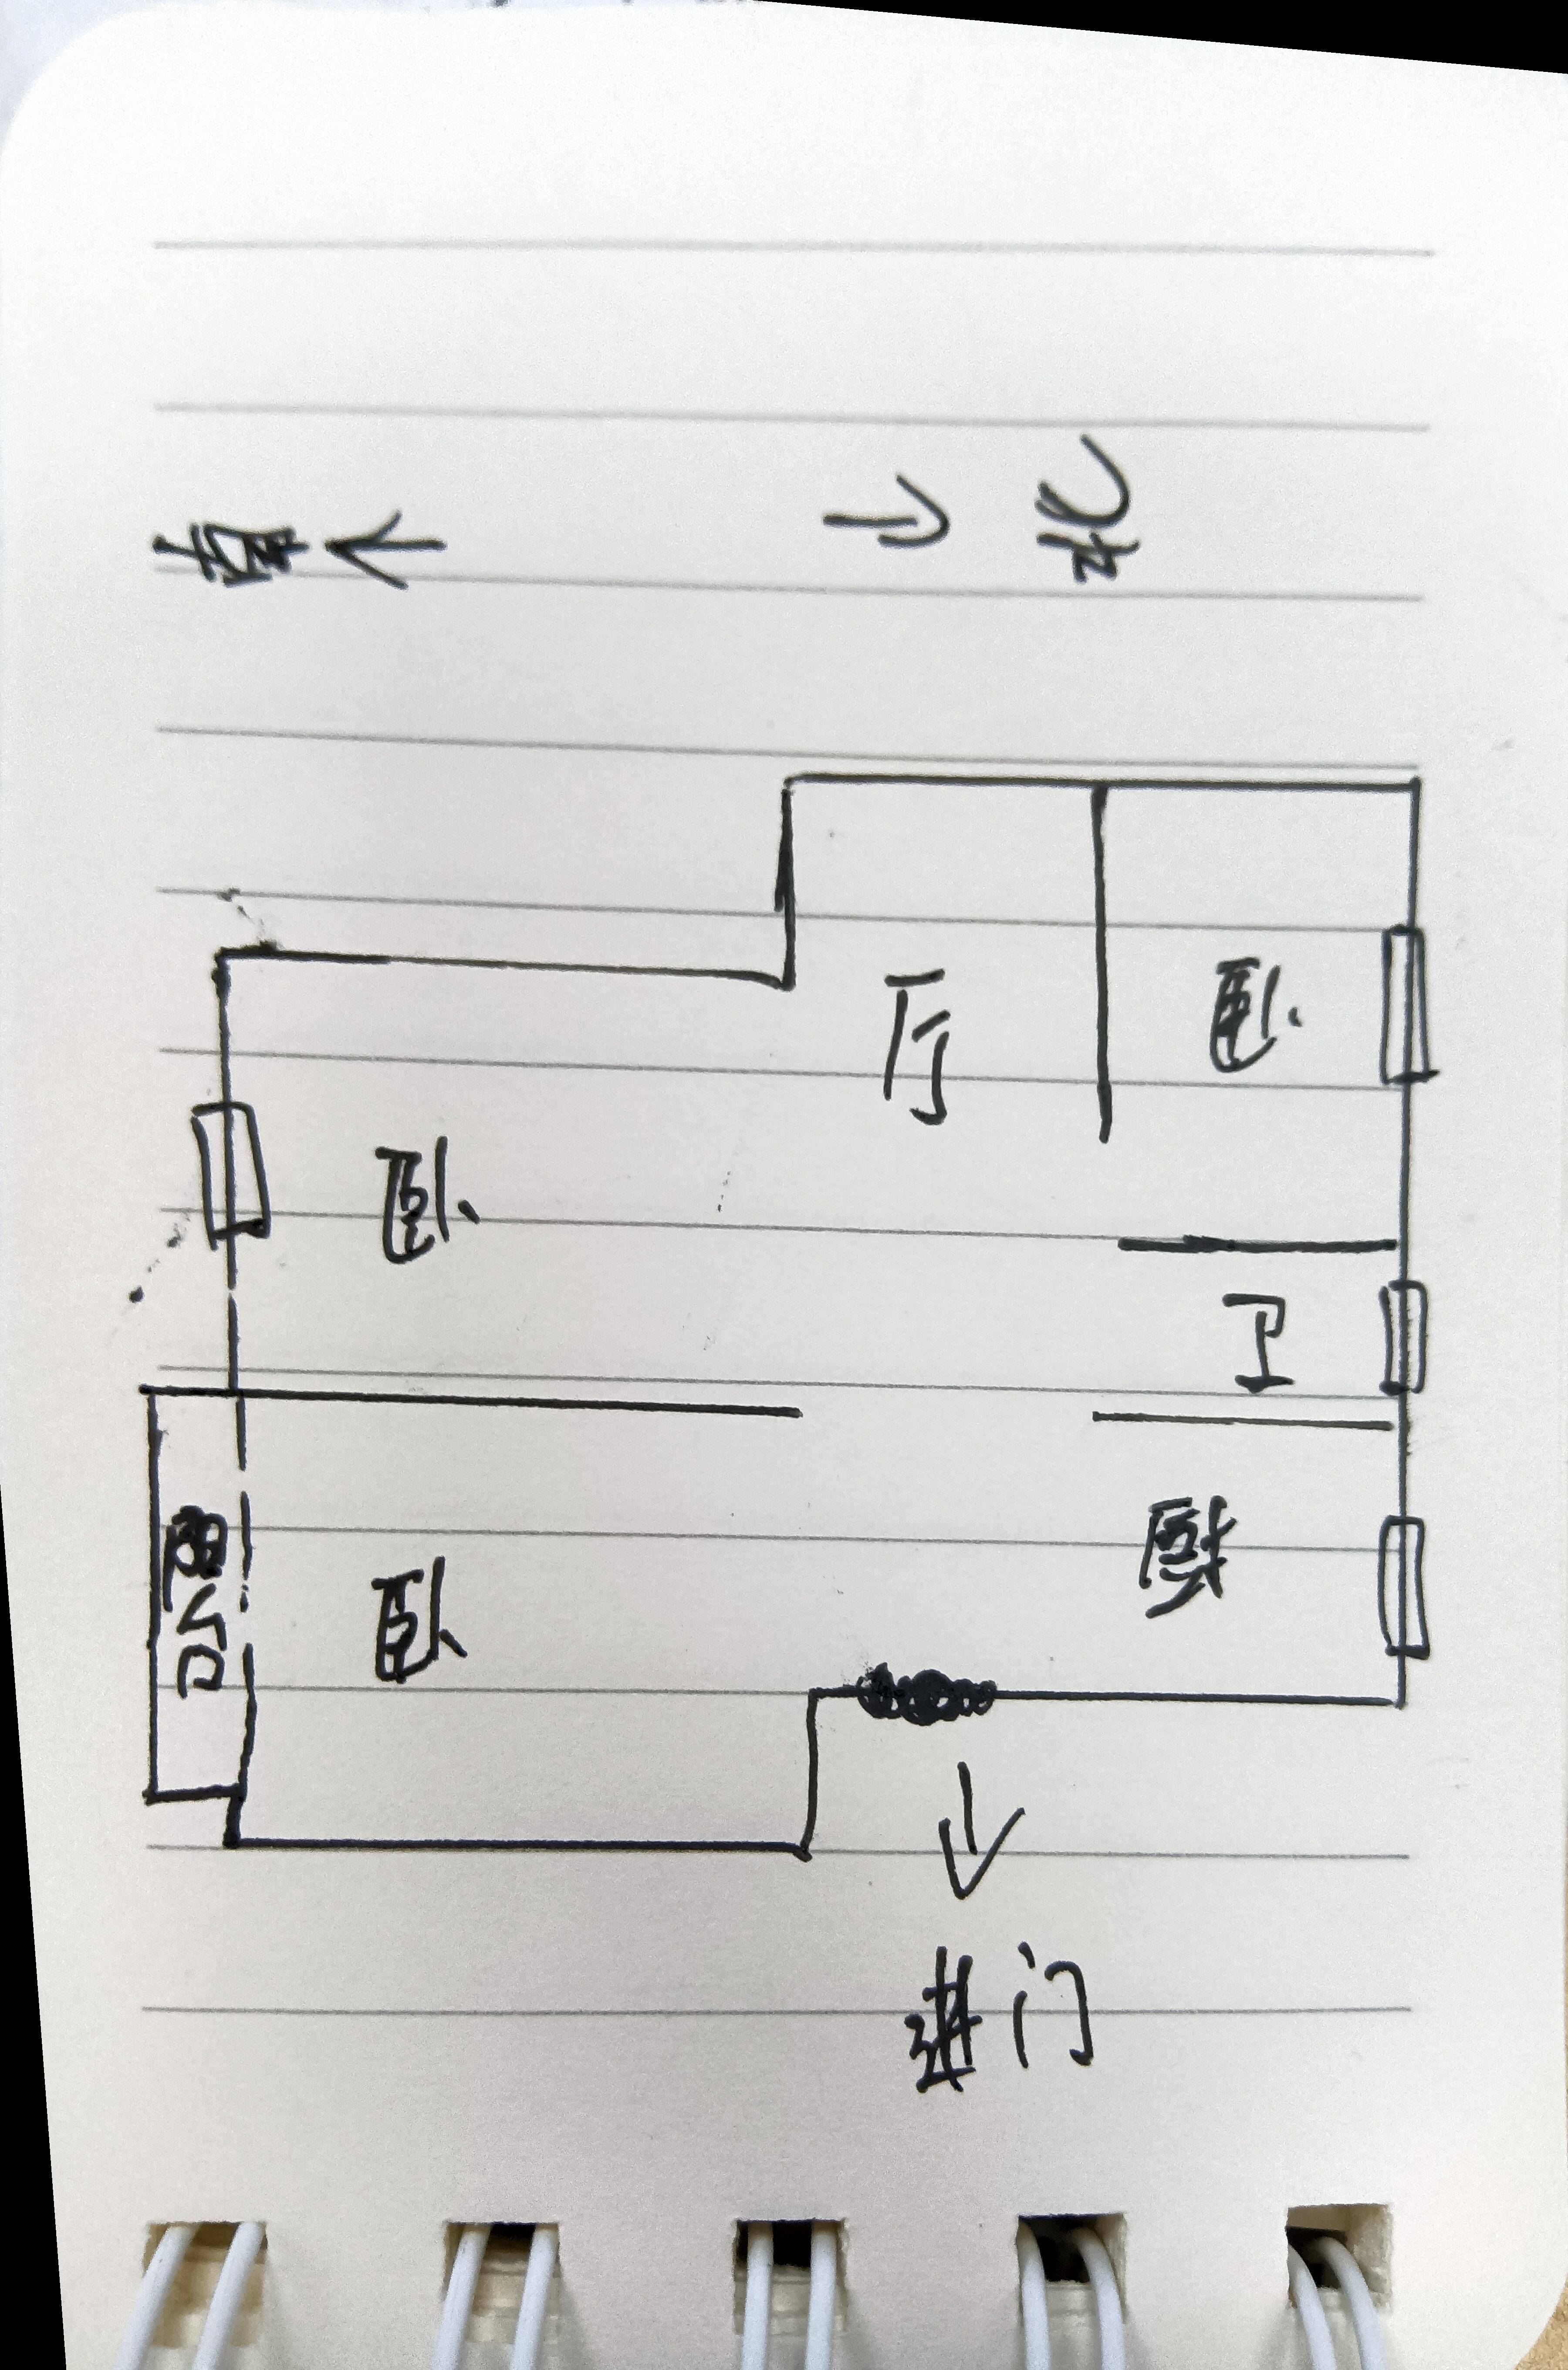 南 ← → 北
厅 卧
卧
卫
阳台
卧
厨
↓
进门